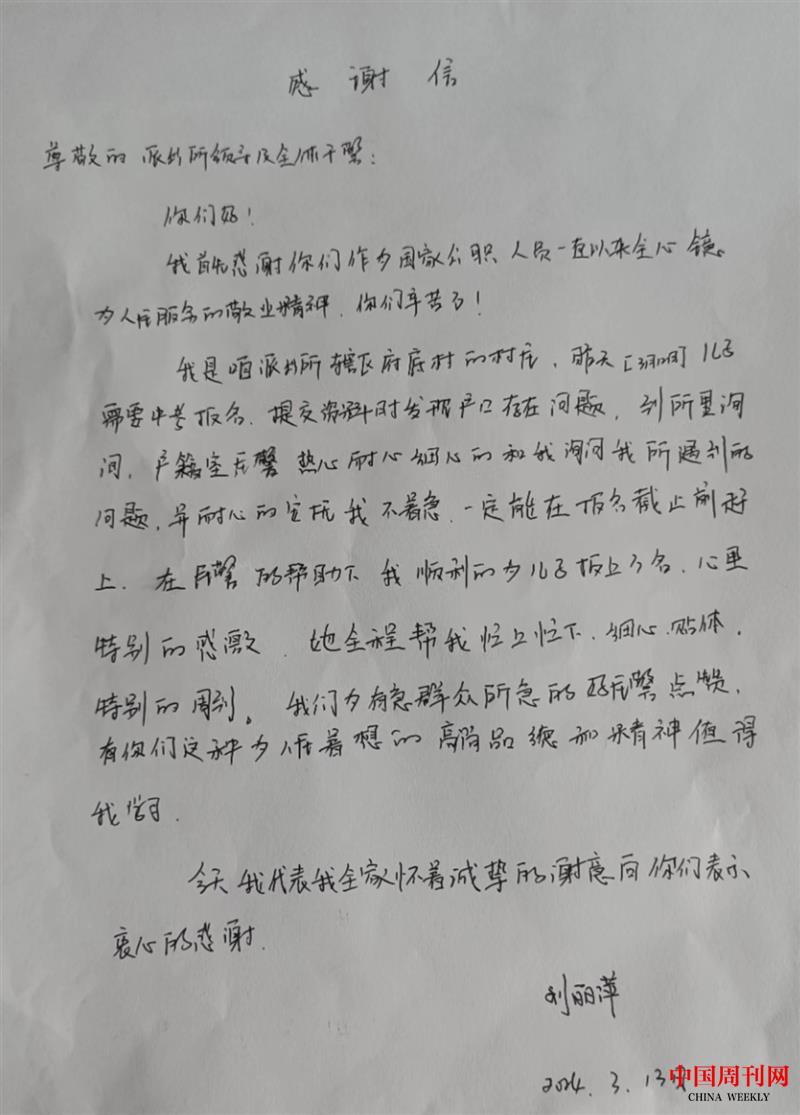 感谢信
尊敬的派出所领导及全体干警：
你们好！
我首先感谢你们作为国家公职人员一直以来全心
为人民服务的敬业精神．你们辛苦了！
我是咱派出所辖区府底村的村民，昨天 儿子
需要中考报名．提交资料时发现户口存在问题，到所里询
问，户籍室民警热心耐心细心的和我询问我所遇到的
问题，并耐心的安抚我不着急．一定能在报名截止前赶
上．在民警的帮助下我顺利的为儿子报上了名．心里
特别的感激．她全程帮我忙上忙下．细心．贴体．
特别的周到。我们为有急群众所急的好民警点赞．
有你们这种为人民着想的高尚品德和精神值得
我学习．
今天我代表我全家怀着诚挚的谢意向你们表示
衷心的感谢．
刘丽萍
2024.3.13
中国周刊网
CHINA WEEKLY